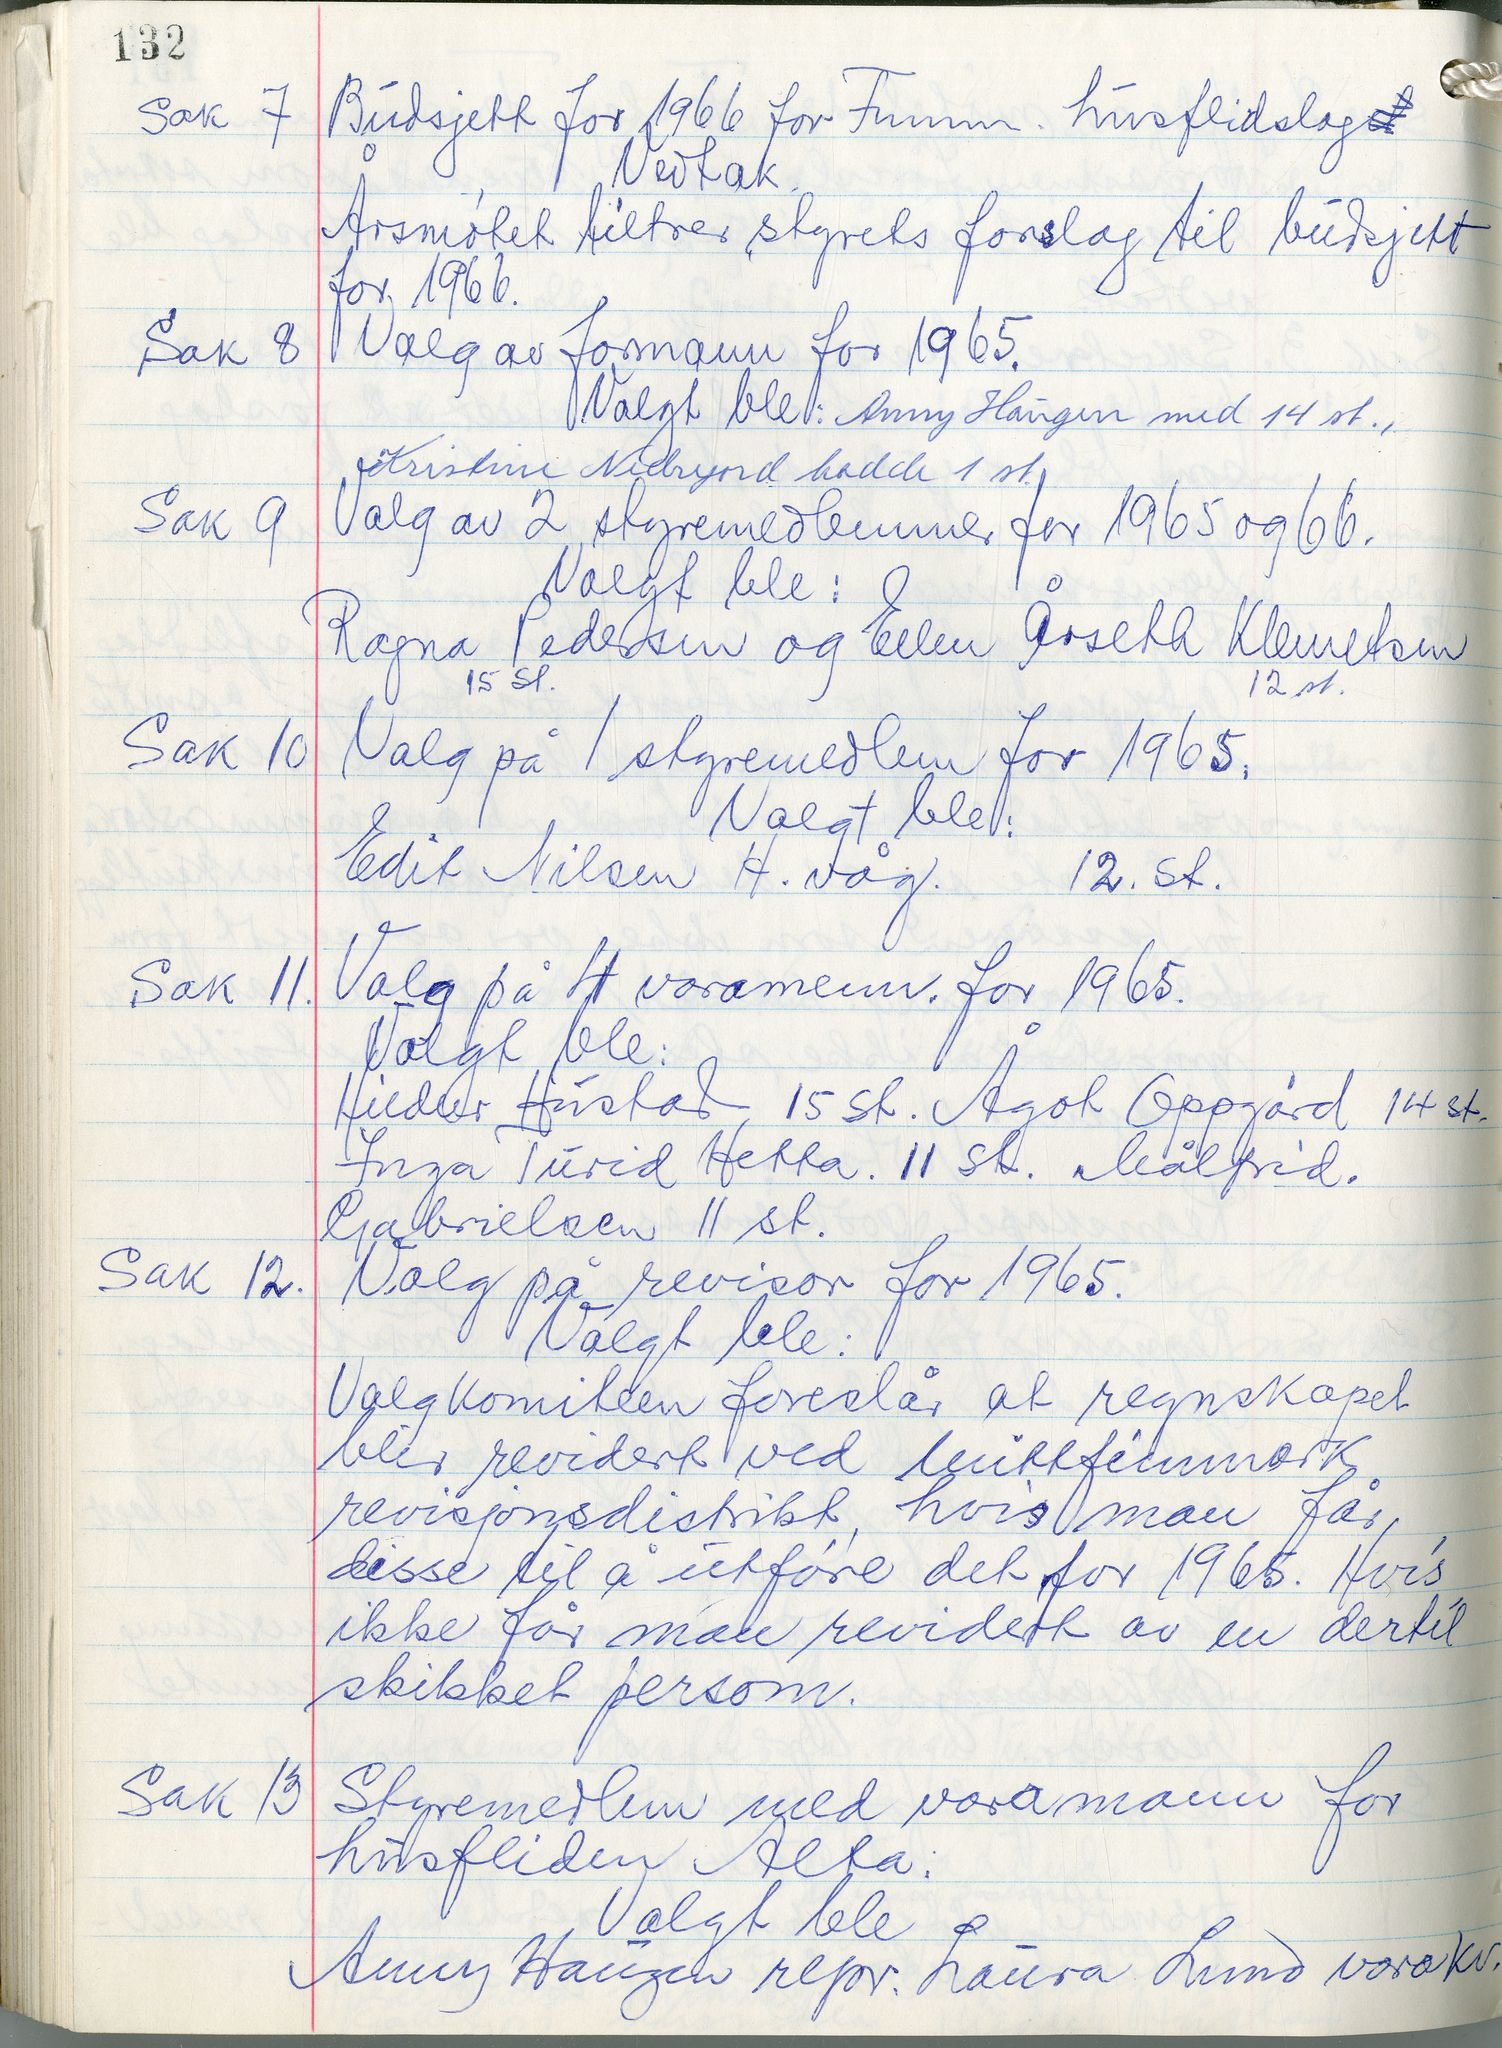 132
Sak 7 Budsjett for 1966 for Finnm. husflidslag
Vedtak.
Årsmøtet tiltrer styrets forslag til budsjett
for 1966.
Sak 8 Valg av formann for 1965.
Valgt ble: Anny Haugen med 14 st.,
Kristine Nedrejord hadde 1 st.
Sak 9 Valg av 2 styremedlemmer for 1965 og 66.
Valgt ble:
Ragna Pedersen og Ellen Årseth Klemetsen
15 st. 12 st.
Sak 10 Valg på 1 styremedlem for 1965.
Valgt ble:
Edit Nilsen H. våg. 12. st.
Sak 11. Valg på 4 varamenn. for 1965.
Valgt ble:
Hustad 15 st. Ågot Oppgård 14 st.
Inga Turid Hetta. 11 st. Målfrid.
Gabrielsen 11 st.
Sak 12. Valg på revisor for 1965.
Valgt ble:
Valgkomiteen foreslår at regnskapet
blir revidert ved Mittfinnmark
revisjonsdistrikt, hvis man får
disse til å utføre det for 1965. Hvis
ikke får man revidert av en dertil
skikket person.
Sak 13 Styremedlem med varamann for
husfliden Alta:
Valgt ble
Anny Haugen repr. Laura Lund varakv.